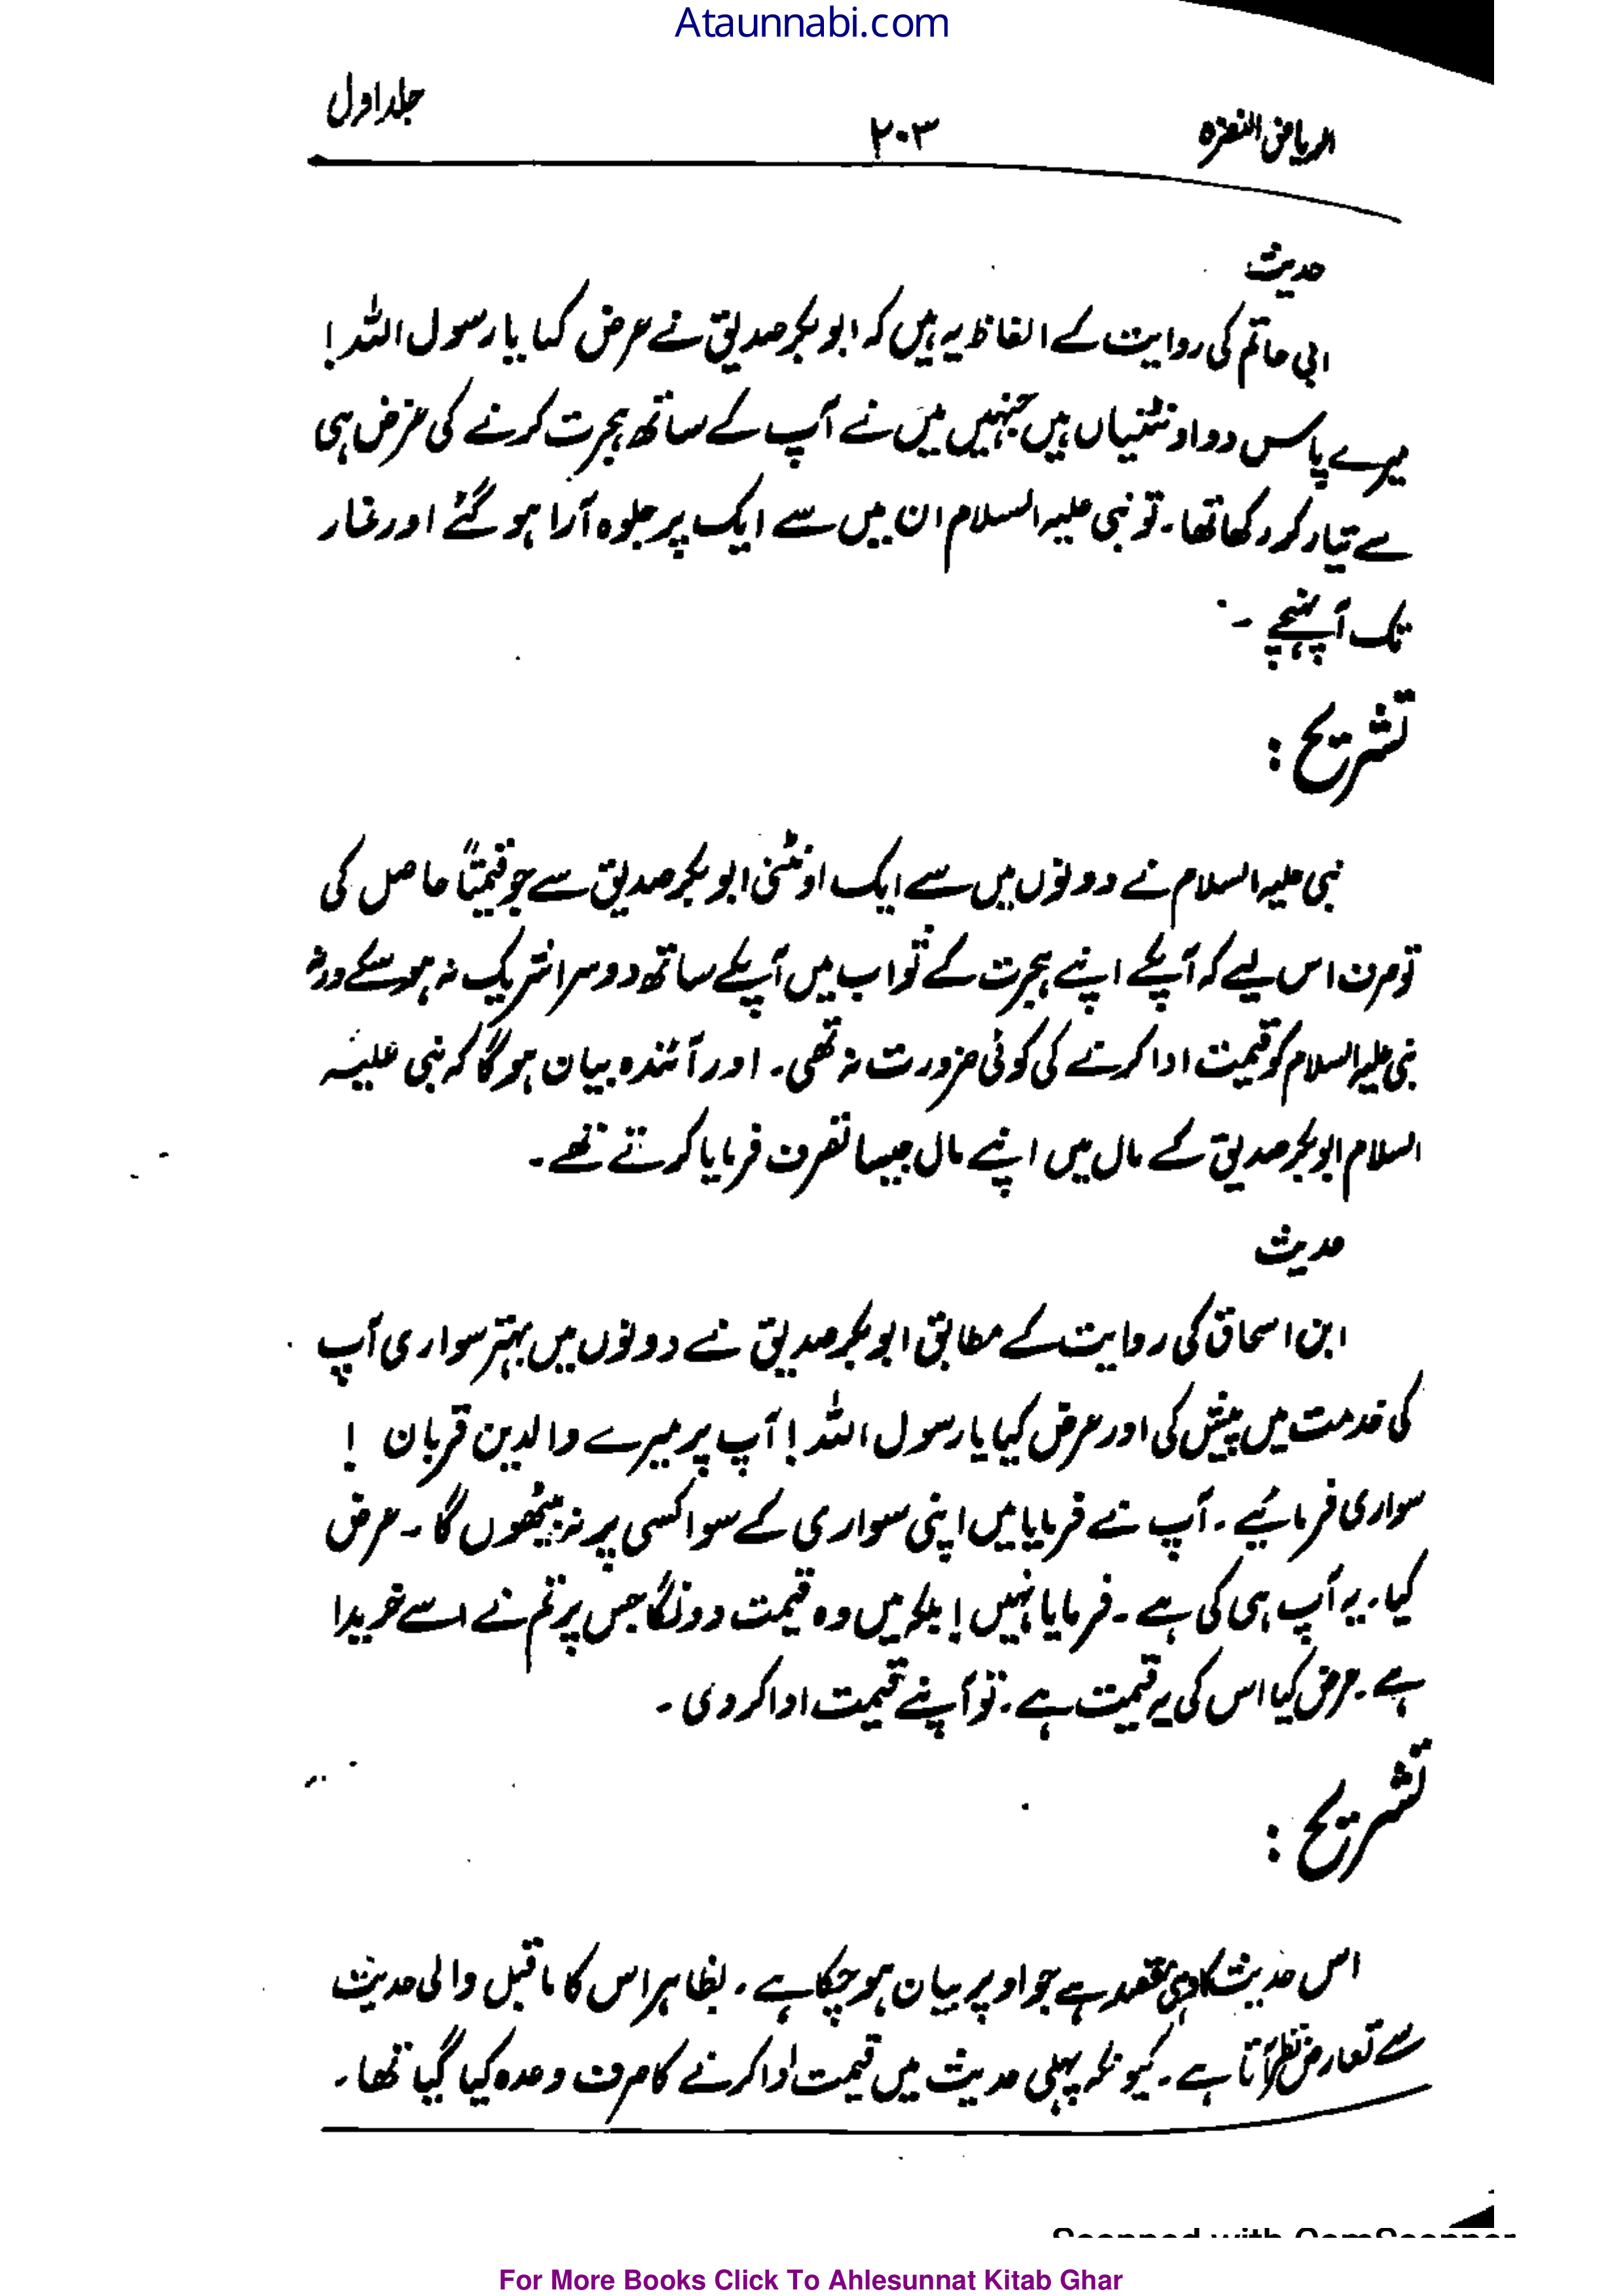 Ataunnabi.com
الریاض النضرہ ۲۰۳ جلد اول
حدیث
ابی حاتم کی روایت کے الفاظ یہ ہیں کہ ابو بکر صدیق نے عرض کیا یا رسول اللہ!
میرے پاس دو اونٹنیاں ہیں جنہیں میں نے آپ کے ساتھ ہجرت کرنے کی غرض ہی
سے تیار کر رکھا تھا۔ تو نبی علیہ السلام ان میں سے ایک پر جلوہ آرا ہو گئے اور غار
تک آپہنچے ۔
تشریح :
نبی علیہ السلام نے دونوں میں سے ایک اونٹنی ابو بکر صدیق سے جو قیمتاً حاصل کی
تو صرف اس لیے کہ آپکے اپنے ہجرت کے ثواب میں آپکے ساتھ دوسرا شریک نہ ہو سکے ورنہ
نبی علیہ السلام کو قیمت ادا کرنے کی کوئی ضرورت نہ تھی۔ اور آئندہ بیان ہو گا کہ نبی علیہ
السلام ابو بکر صدیق کے مال میں اپنے مال جیسا تصرف فرمایا کرتے تھے۔
حدیث
ابن اسحاق کی روایت کے مطابق ابو بکر صدیق نے دونوں میں بہتر سواری آپ
کی خدمت میں پیش کی اور عرض کیا یا رسول اللہ! آپ پر میرے والدین قربان !
سواری فرمائیے ۔ آپ نے فرمایا میں اپنی سواری کے سوا کسی پر نہ بیٹھوں گا ۔ عرض
کیا۔ یہ آپ ہی کی ہے ۔ فرمایا نہیں! بلکہ میں وہ قیمت دونگا جس پر تم نے اسے خریدا
ہے ۔ عرض کیا اس کی یہ قیمت ہے ۔ تو آپنے قیمت ادا کر دی ۔
تشریح :
اس حدیث کا وہی مقصد ہے جو اوپر بیان ہو چکا ہے ۔ بظاہر اس کا ماقبل والی حدیث
سے تعارض نظر آتا ہے ۔ کیونکہ پہلی حدیث میں قیمت ادا کرنے کا صرف وعدہ کیا گیا تھا ۔
Scanned with CamScanner
For More Books Click To Ahlesunnat Kitab Ghar